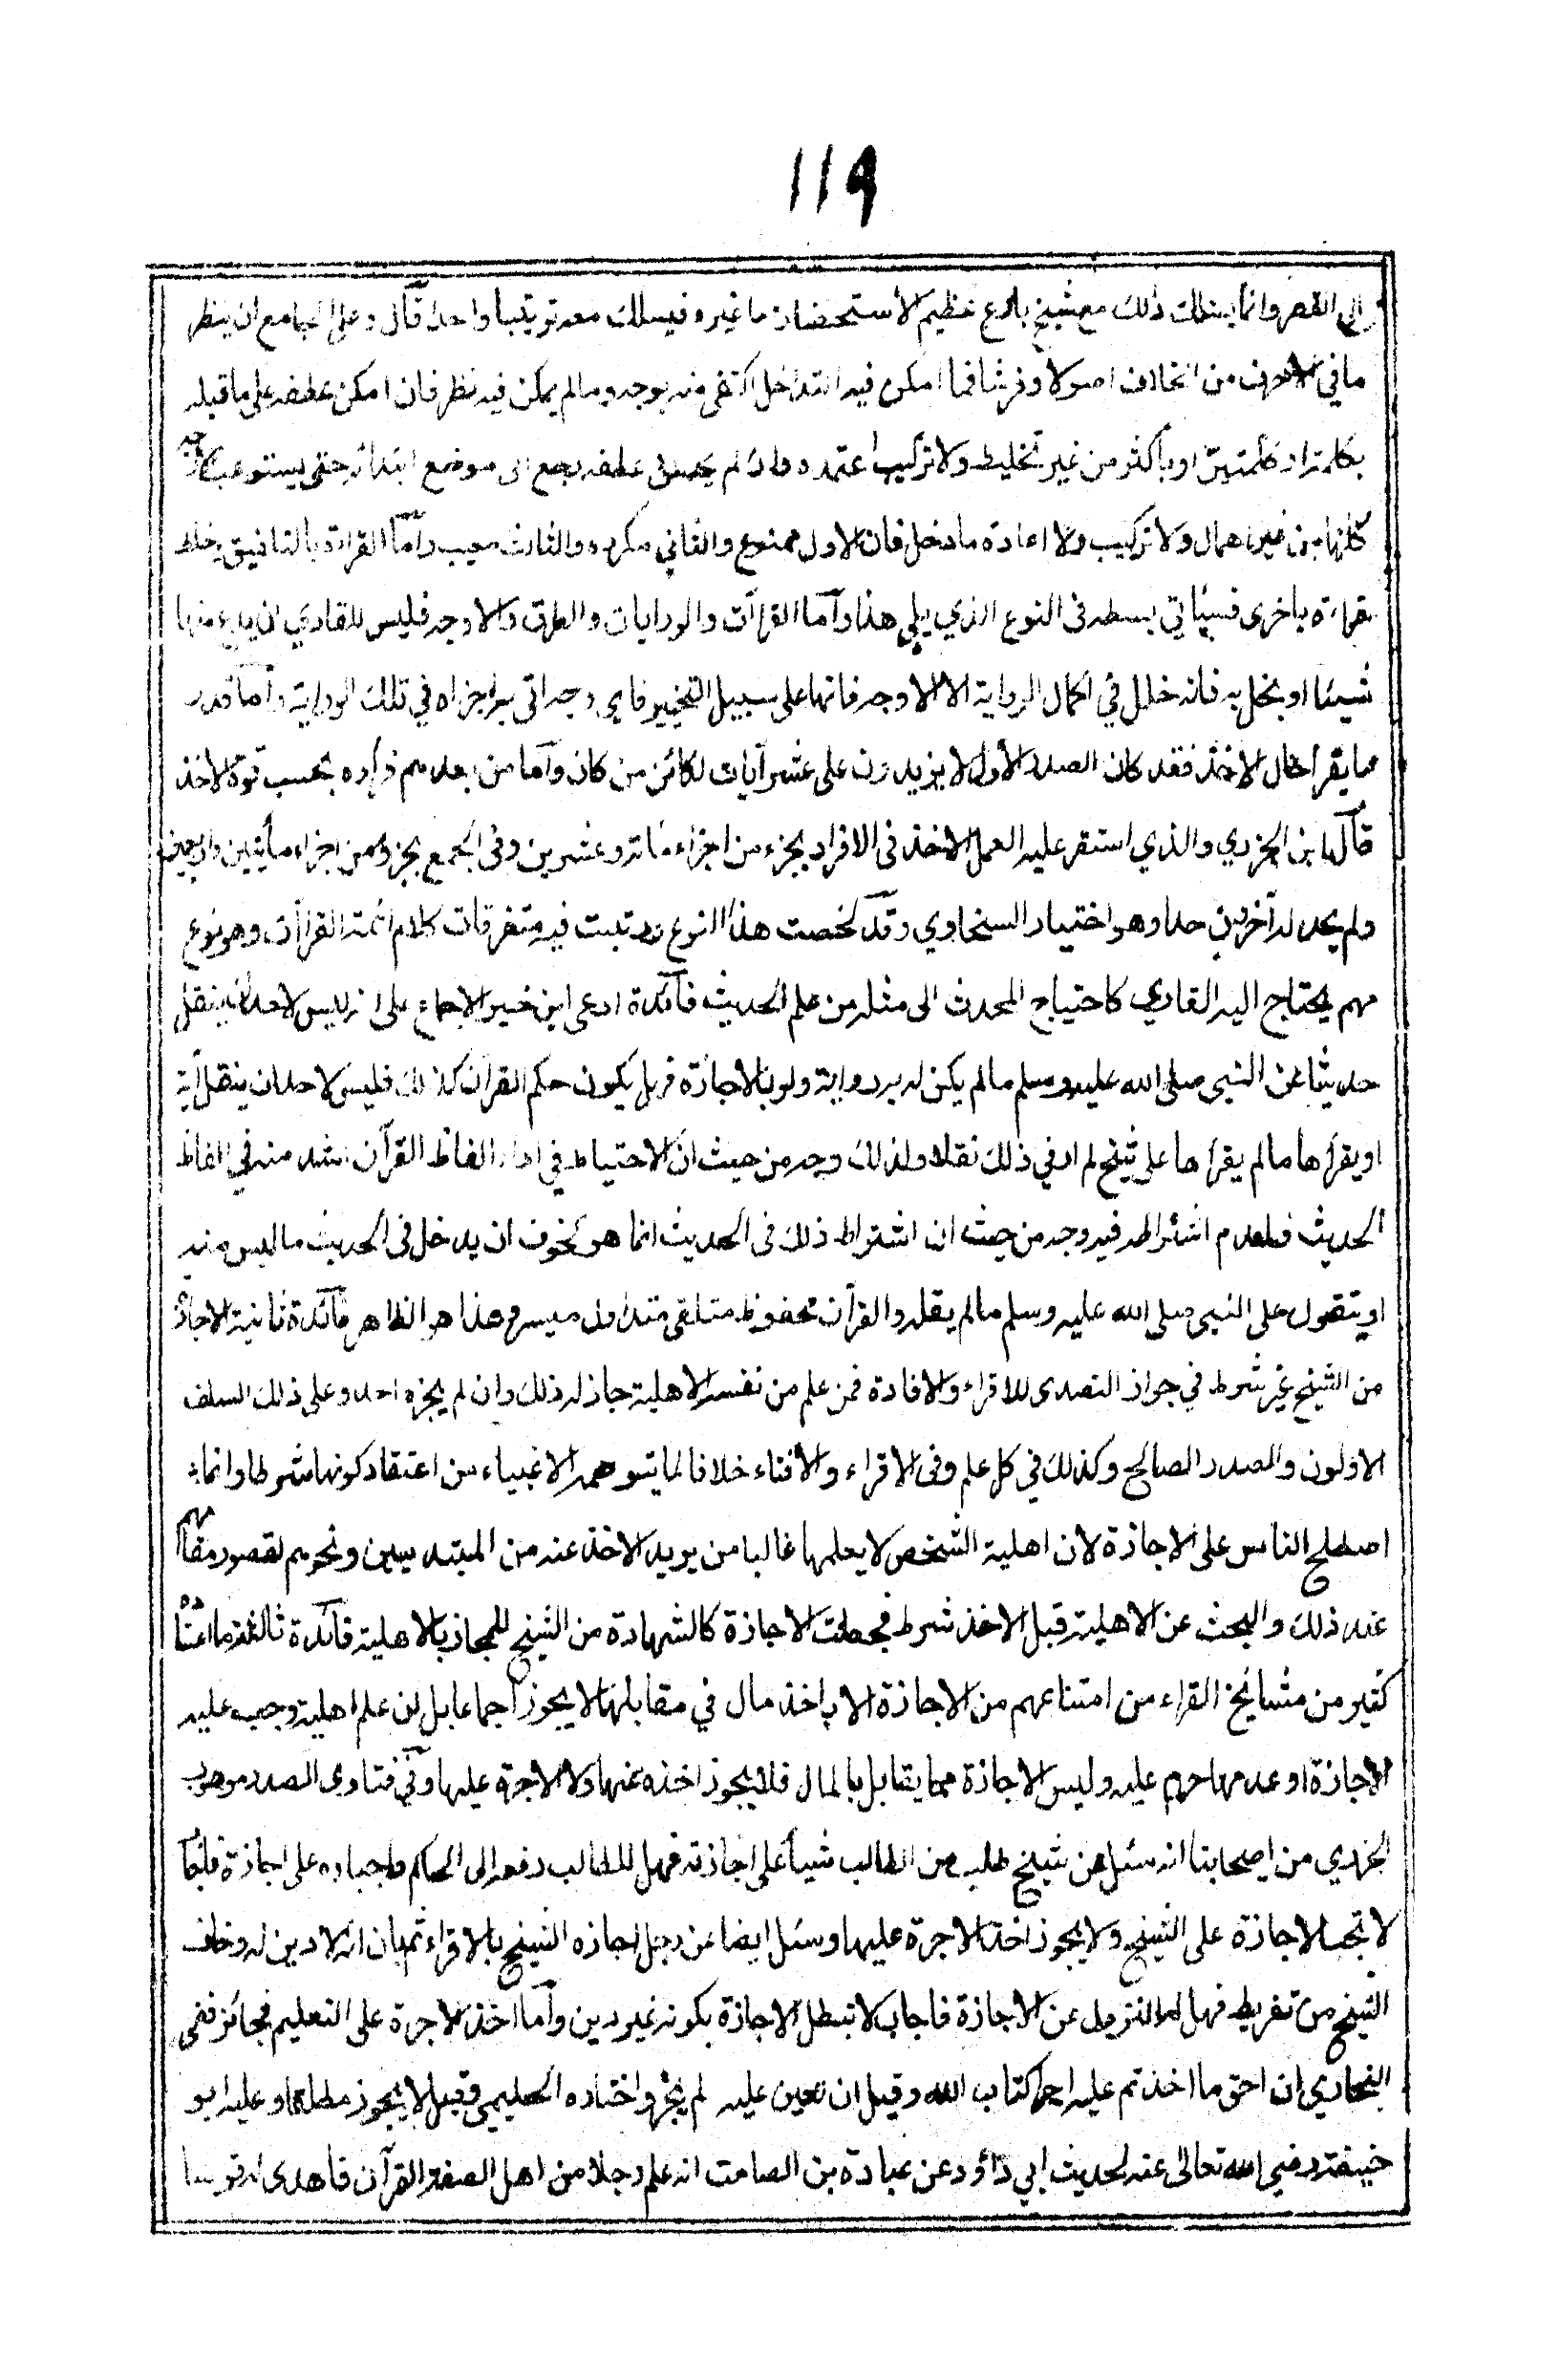 ١١٩
الى القصر وانما يسلك ذلك مع شيخ بارع عظيم الاستحضار اما غيره فيسلك معه ترتيبا واحدا قال وعلى الجامع ان ينظر
ما في الاحرف من الخلاف اصولا وفرشا فما امكن فيه التداخل اكتفى منه بوجه وما لم يمكن فيه نظر فان امكن عطفه على ما قبله
بكلمة او كلمتين او باكثر من غير تخليط ولا تركيب اعتمده وان لم يحسن عطفه رجع الى موضع ابتدائه حتى يستوعب الاوجه
كلها من غير اهمال ولا تركيب ولا اعادة ما دخل فان الاول ممنوع والثاني مكروه والثالث معيب واما القراءة بالتلفيق وخلط
قراءة باخرى فسيأتي بسطه في النوع الذي يلي هذا واما القرآت والروايات والطرق والاوجه فليس للقاري ان يدع منها
شيئا او يخل به فانه خلل في اكمال الرواية الا الاوجه فانها على سبيل التخيير فاي وجه اتى به اجزاه في تلك الرواية واما قدر
ما يقرأ حال الاخذ فقد كان الصدر الاول لا يزيدون على عشر آيات لكائن من كان وآما من بعدهم فرأوه بحسب قوة الاخذ
قال ابن الجزري والذي استقر عليه العمل الاخذ في الافراد بجزء من اجزاء مائة وعشرين وفي الجمع بجزء من اجزاء مأتين واربعين
ولم يحد له آخرون حدا وهو اختيار السخاوي وقد لخصت هذا النوع ورتبت فيه متفرقات كلام ائمة القرآت وهو نوع
مهم يحتاج اليه القاري كاحتياج المحدث الى مثله من علم الحديث فائدة ادعى ابن خير الاجماع على انه ليس لاحد ان ينقل
حديثا عن النبي صلى الله عليه وسلم ما لم يكن له به رواية ولو بالاجازة فهل يكون حكم القرآن كذلك فليس لاحد ان ينقل آية
او يقرأها ما لم يقرأها على شيخ لم ار في ذلك نقلا ولذلك وجه من حيث ان الاحتياط في اداء الفاظ القرآن اشد منه في الفاظ
الحديث ولعدم اشتراطه فيه وجه من حيث ان اشتراط ذلك في الحديث انما هو لخوف ان يدخل في الحديث ما ليس منه
او يتقول على النبي صلى الله عليه وسلم ما لم يقله والقرآن محفوظ متلقى متداول ميسر وهذا هو الظاهر فائدة ثانية الاجازة
من الشيخ غير شرط في جواز التصدى للاقراء والافادة فمن علم من نفسه الاهلية جاز له ذلك وان لم يجزه احد وعلى ذلك السلف
الاولون والصدر الصالح وكذلك في كل علم وفى الاقراء والافتاء خلافا لما يتوهمه الاغبياء من اعتقاد كونها شرطا وانما
اصطلح الناس على الاجازة لان اهلية الشخص لا يعلمها غالبا من يريد الاخذ عنه من المبتديين ونحوهم لقصور مقامهم
عند ذلك والبحث عن الاهلية قبل الاخذ شرط فجعلت الاجازة كالشهادة من الشيخ للمجاز بالاهلية فائدة ثالثة ما اعتاده
كثير من مشائخ القراء من امتناعهم من الاجازة الا باخذ مال في مقابلتها لا يجوز اجماعا بل ان علم اهليته وجب عليه
الاجازة او عدمها حرم عليه وليس الاجازة مما يقابل بالمال فلا يجوز اخذه عنها ولا الاجرة عليها وفي فتاوى الصدر موهوب
الجزري من اصحابنا انه سئل عن شيخ طلب من الطالب شيئا على اجازته فهل للطالب رفعه الى الحاكم واجباره على اجازة فاجاب
لا تجب الاجازة على الشيخ ولا يجوز اخذ الاجرة عليها وسئل ايضا عن رجل اجازه الشيخ بالاقراء ثم بان انه لا دين له وخاف
الشيخ من تفريطه فهل له النزول عن الاجازة فاجاب لا تبطل الاجازة بكونه غير دين وآما اخذ الاجرة على التعليم فجائز ففى
البخاري ان احق ما اخذتم عليه اجرا كتاب الله وقيل ان تعين عليه لم يجز واختاره الحليمي وقيل لا يجوز مطلقا وعليه ابو
حنيفة رضي الله تعالى عنه لحديث ابي داؤد عن عبادة بن الصامت انه علم رجلا من اهل الصفة القرآن فاهدى له قوسا